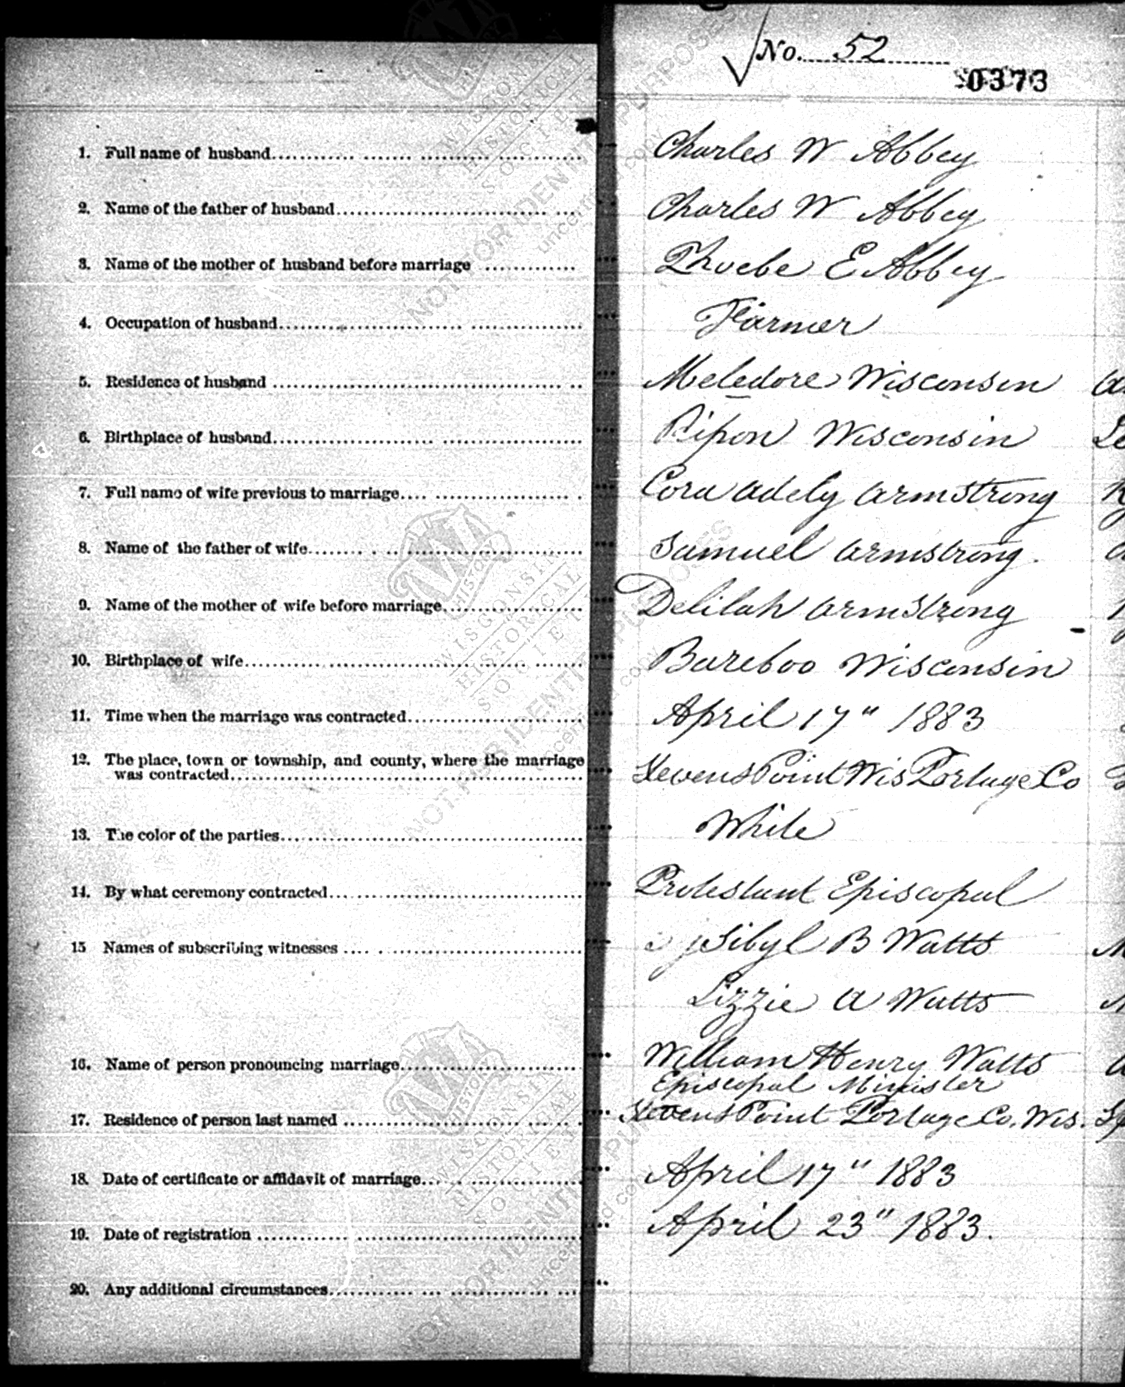 No. 52
0373
1. Full name of husband Charles W Abbey
2. Name of the father of husband Charles W Abbey
3. Name of the mother of husband before marriage Phoebe E Abbey
4. Occupation of husband Farmer
5. Residence of husband Meledore Wisconsin
6. Birthplace of husband Ripon Wisconsin
7. Full name of wife previous to marriage Cora Adely Armstrong
8. Name of the father of wife Samuel Armstrong.
9. Name of the mother of wife before marriage Delilah Armstrong
10. Birthplace of wife Bareboo Wisconsin
11. Time when the marriage was contracted April 17" 1883
12. The place, town or township, and county, where the marriage
was contracted Stevens Point Wis Portage Co
13. The color of the parties White
14. By what ceremony contracted Protestant Episcopal
15 Names of subscribing witnesses Sibyl B Watts
Lizzie A Watts
16. Name of person pronouncing marriage William Henry Watts
Episcopal Minister
17. Residence of person last named Stevens Point Portage Co. Wis.
18. Date of certificate or affidavit of marriage April 17" 1883
19. Date of registration April 23" 1883.
20. Any additional circumstances
WISCONSIN
HISTORICAL
SOCIETY
NOT FOR IDENTITY PURPOSES